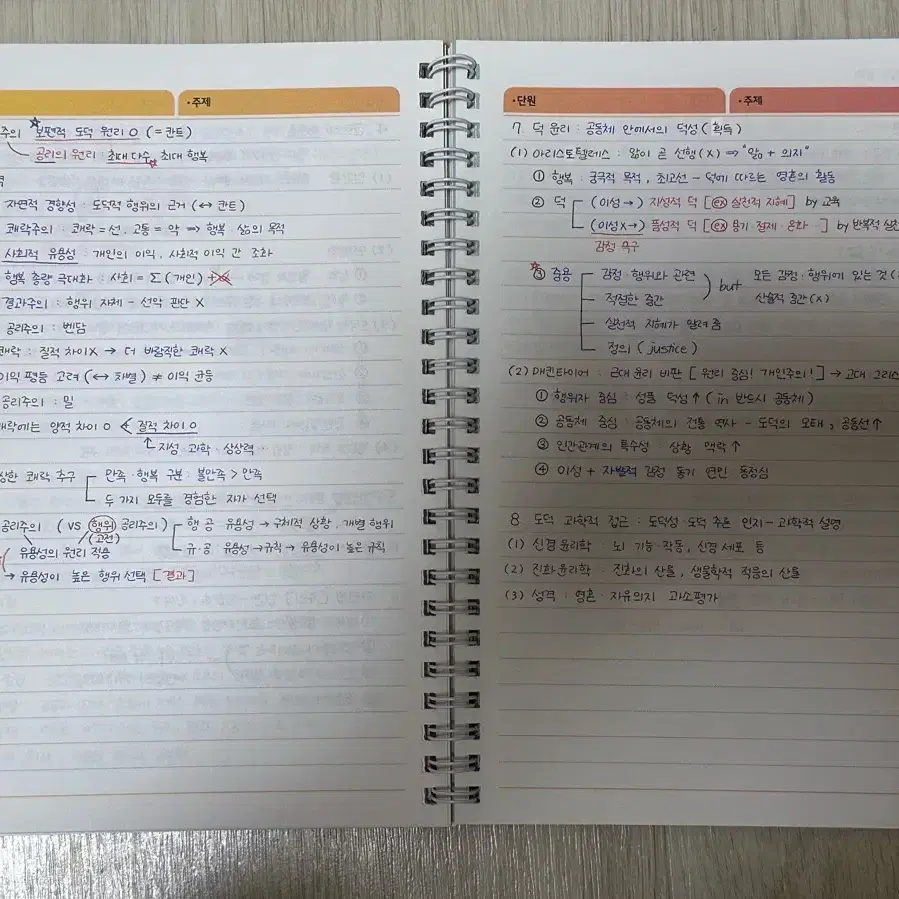 ·주제
주의 ☆ 보편적 도덕 원리 O (= 칸트)
공리의 원리 : 최대 다수 ☆ 최대 행복
자연적 경향성 : 도덕적 행위의 근거 (↔ 칸트)
쾌락주의 : 쾌락 = 선, 고통 = 악 ⇒ 행복 · 삶의 목적
사회적 유용성 : 개인의 이익, 사회적 이익 간 조화
행복 총량 극대화 : 사회 = Σ (개인)
결과주의 : 행위 자체 - 선악 판단 X
공리주의 : 벤담
쾌락 : 질적 차이X → 더 바람직한 쾌락 X
이익 평등 고려 (↔ 차별) ≠ 이익 균등
공리주의 : 밀
쾌락에는 양적 차이 O < 질적 차이 O
↑ 지성 · 과학 · 상상력 ··
상한 쾌락 추구 만족 · 행복 구분 : 불만족 > 만족
두 가지 모두를 경험한 자가 선택
공리주의 (VS 행위 공리주의) 행 · 공 유용성 → 구체적 상황, 개별 행위
(고전)
유용성의 원리 적용 규 · 공 : 유용성 → 규칙 → 유용성이 높은 규칙
→ 유용성이 높은 행위 선택 [결과]
·단원 ·주제
7. 덕 윤리 : 공동체 안에서의 덕성 (획득)
(1) 아리스토텔레스 : 앎이 곧 선행 (X) ⇒ "앎 + 의지"
① 행복 : 궁극적 목적, 최고선 - 덕에 따르는 영혼의 활동
② 덕 (이성→) 지성적 덕 [ex 실천적 지혜] by 교육
(이성X→) 품성적 덕 [ex 용기 · 절제 · 온화 ··] by 반복적 실천
감정 · 욕구
☆③ 중용 감정 · 행위와 관련 ) but 모든 감정 · 행위에 있는 것 (
적절한 중간 산술적 중간 (X)
실천적 지혜가 알려 줌
정의 (justice)
(2) 매킨타이어 : 근대 윤리 비판 [원리 중심! 개인주의!] → 고대 그리스
① 행위자 중심 : 성품 · 덕성↑ (in 반드시 공동체)
② 공동체 중심 : 공동체의 전통 · 역사 - 도덕의 모태, 공동선↑
③ 인간관계의 특수성 : 상황 · 맥락↑
④ 이성 + 자발적 감정 · 동기 · 연민 · 동정심
8. 도덕 과학적 접근 : 도덕성 · 도덕 추론 · 인지 - 과학적 설명
(1) 신경 윤리학 : 뇌 기능 · 작동, 신경 세포 등
(2) 진화 윤리학 : 진화의 산물, 생물학적 적응의 산물
(3) 성격 : 영혼 · 자유의지 과소평가